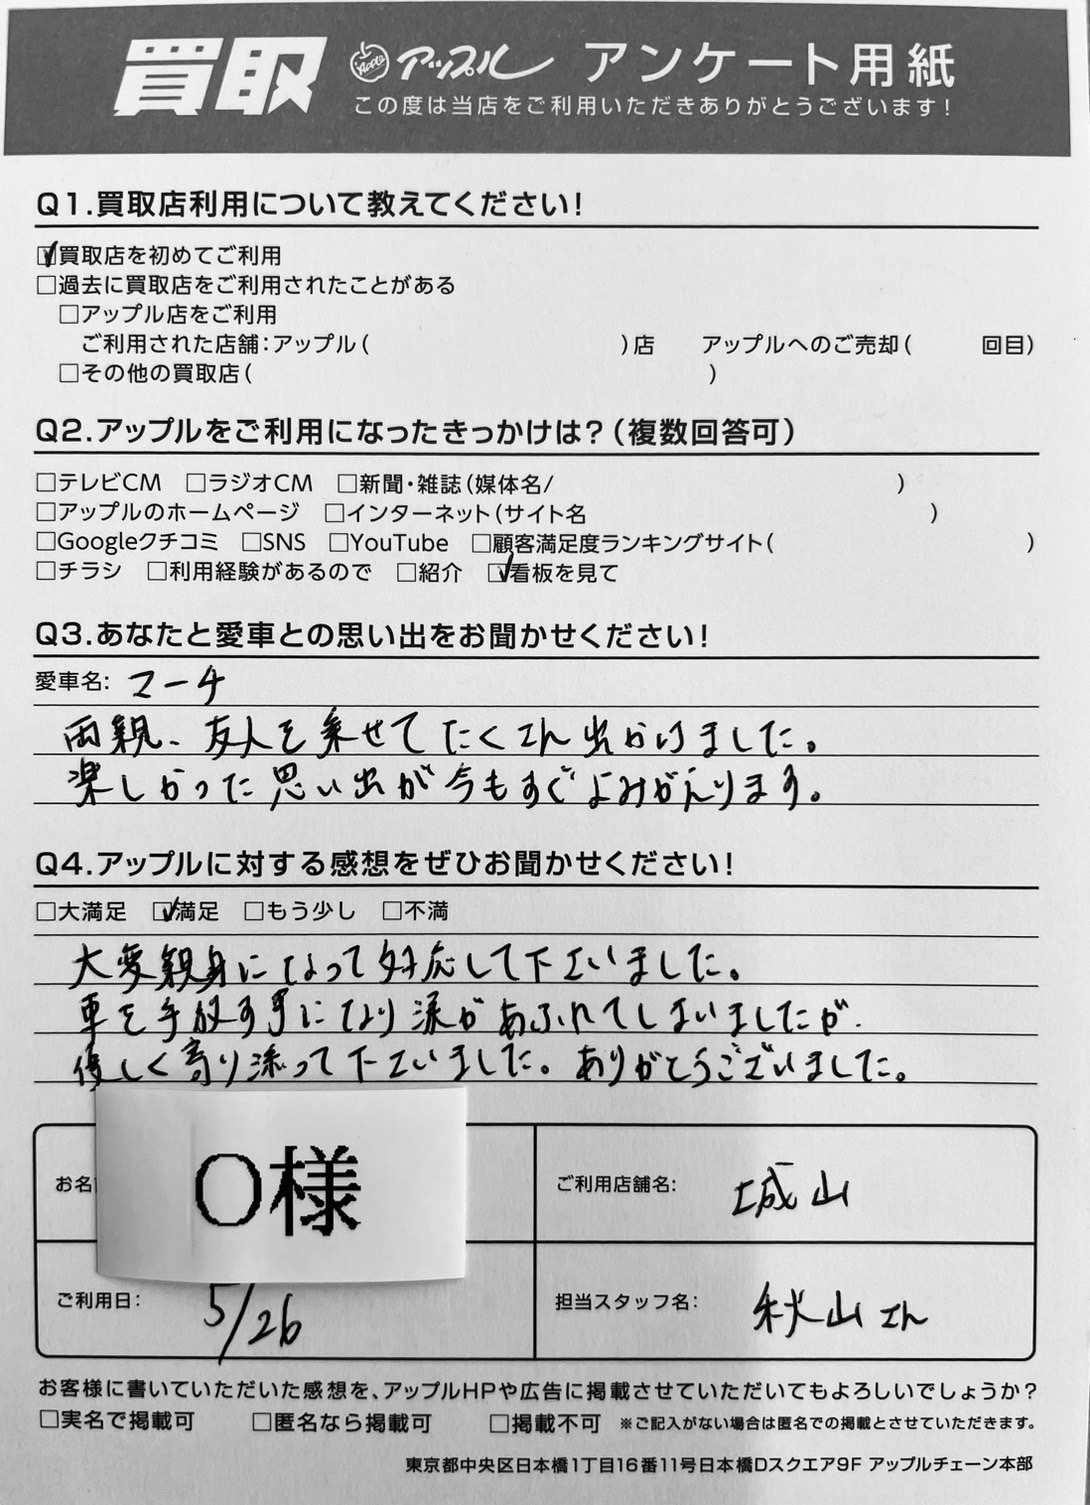 買取 Apple アップル アンケート用紙
この度は当店をご利用いただきありがとうございます!
Q1.買取店利用について教えてください!
☑買取店を初めてご利用
□過去に買取店をご利用されたことがある
□アップル店をご利用
ご利用された店舗:アップル( )店 アップルへのご売却( 回目)
□その他の買取店( )
Q2.アップルをご利用になったきっかけは?(複数回答可)
□テレビCM □ラジオCM □新聞・雑誌(媒体名/ )
□アップルのホームページ □インターネット(サイト名 )
□Googleクチコミ □SNS □YouTube □顧客満足度ランキングサイト( )
□チラシ □利用経験があるので □紹介 ☑看板を見て
Q3.あなたと愛車との思い出をお聞かせください!
愛車名: マーチ
両親、友人を乗せてたくさん出かけました。
楽しかった思い出が今もすぐよみがえります。
Q4.アップルに対する感想をぜひお聞かせください!
□大満足 ☑満足 □もう少し □不満
大変親身になって対応して下さいました。
車を手放す事になり涙があふれてしまいましたが、
優しく寄り添って下さいました。ありがとうございました。
お名 O様 ご利用店舗名: 城山
ご利用日: 5/26 担当スタッフ名: 秋山さん
お客様に書いていただいた感想を、アップルHPや広告に掲載させていただいてもよろしいでしょうか?
□実名で掲載可 □匿名なら掲載可 □掲載不可 ※ご記入がない場合は匿名での掲載とさせていただきます。
東京都中央区日本橋1丁目16番11号日本橋Dスクエア9F アップルチェーン本部